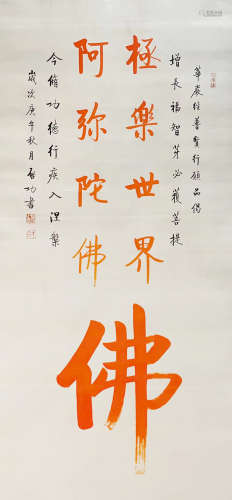 華嚴經普賢行願品偈
增長福智芽必獲菩提
極樂世界
阿弥陀佛
佛
今脩功德行疾入涅槃
歲次庚午秋月啟功書